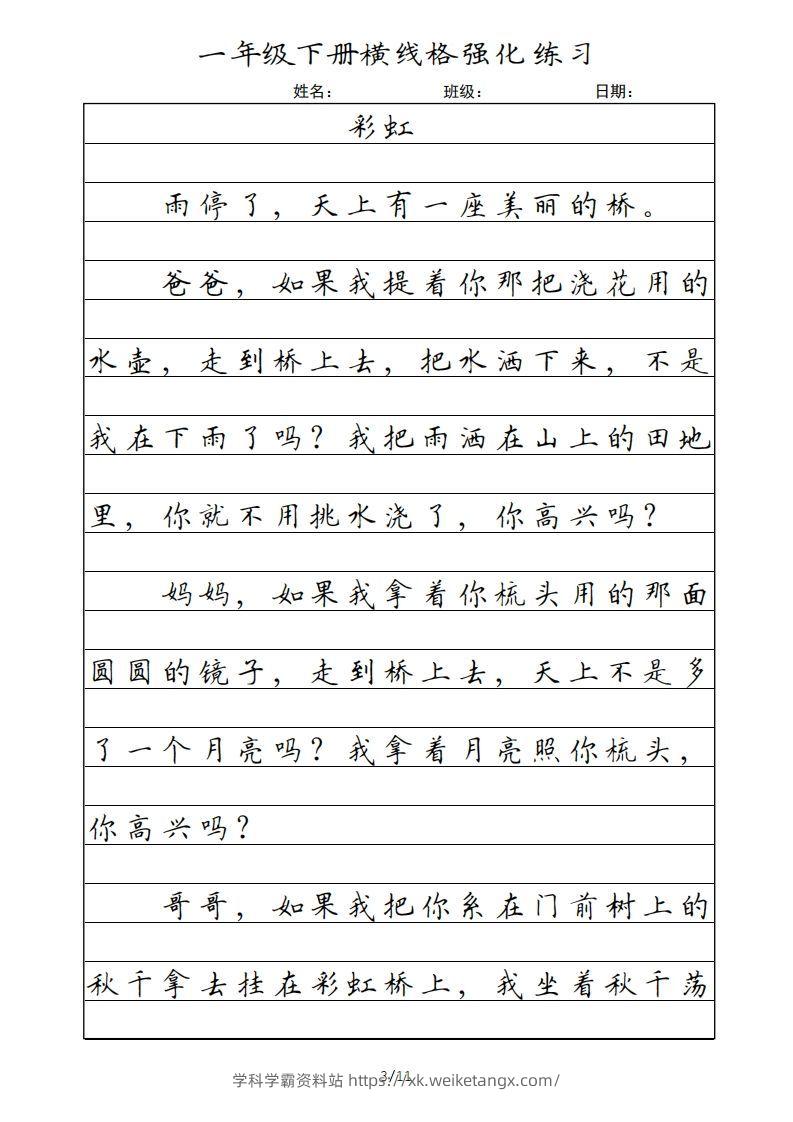 一年级下册横线格强化练习
姓名： 班级： 日期：
彩虹
雨停了，天上有一座美丽的桥。
爸爸，如果我提着你那把浇花用的
水壶，走到桥上去，把水洒下来，不是
我在下雨了吗？我把雨洒在山上的田地
里，你就不用挑水浇了，你高兴吗？
妈妈，如果我拿着你梳头用的那面
圆圆的镜子，走到桥上去，天上不是多
了一个月亮吗？我拿着月亮照你梳头，
你高兴吗？
哥哥，如果我把你系在门前树上的
秋千拿去挂在彩虹桥上，我坐着秋千荡
3/11
学科学霸资料站 https://xk.weiketangx.com/